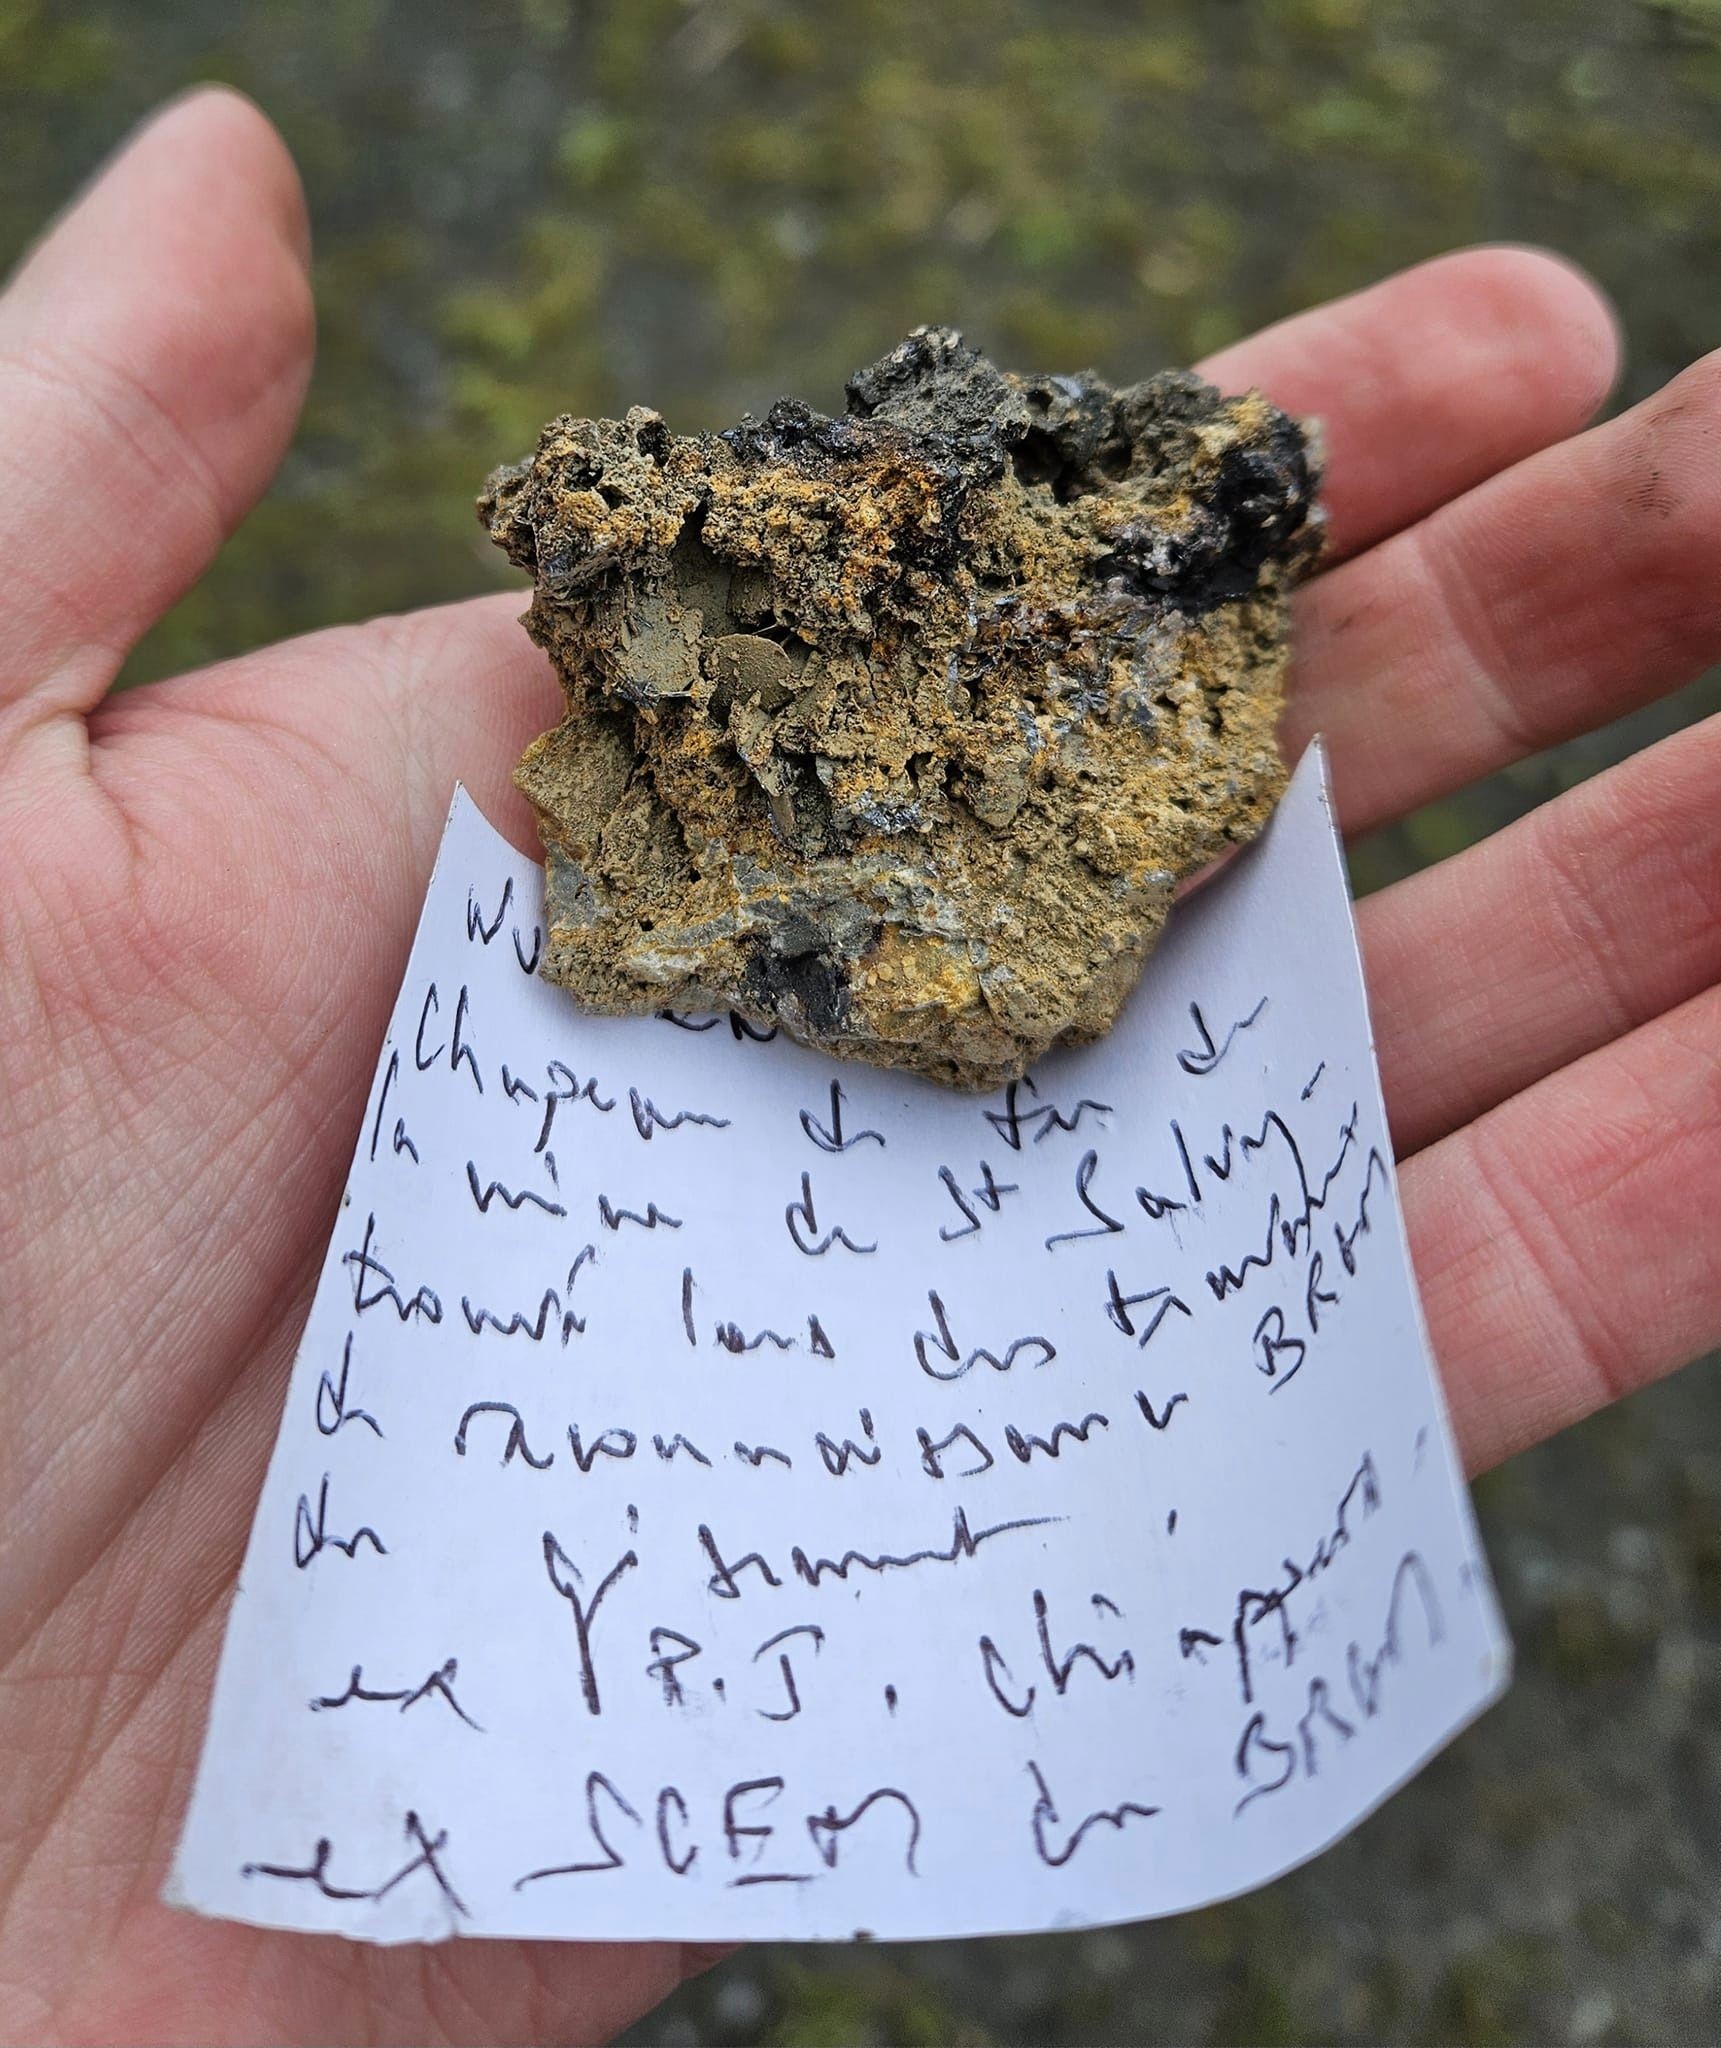 Chapeau de fer de
la mine de St Salvy -
trouvé lors des travaux
de reconnaissance BRGM
du gisement.
ex P.J. Chiappero
ex SCEM du BRGM